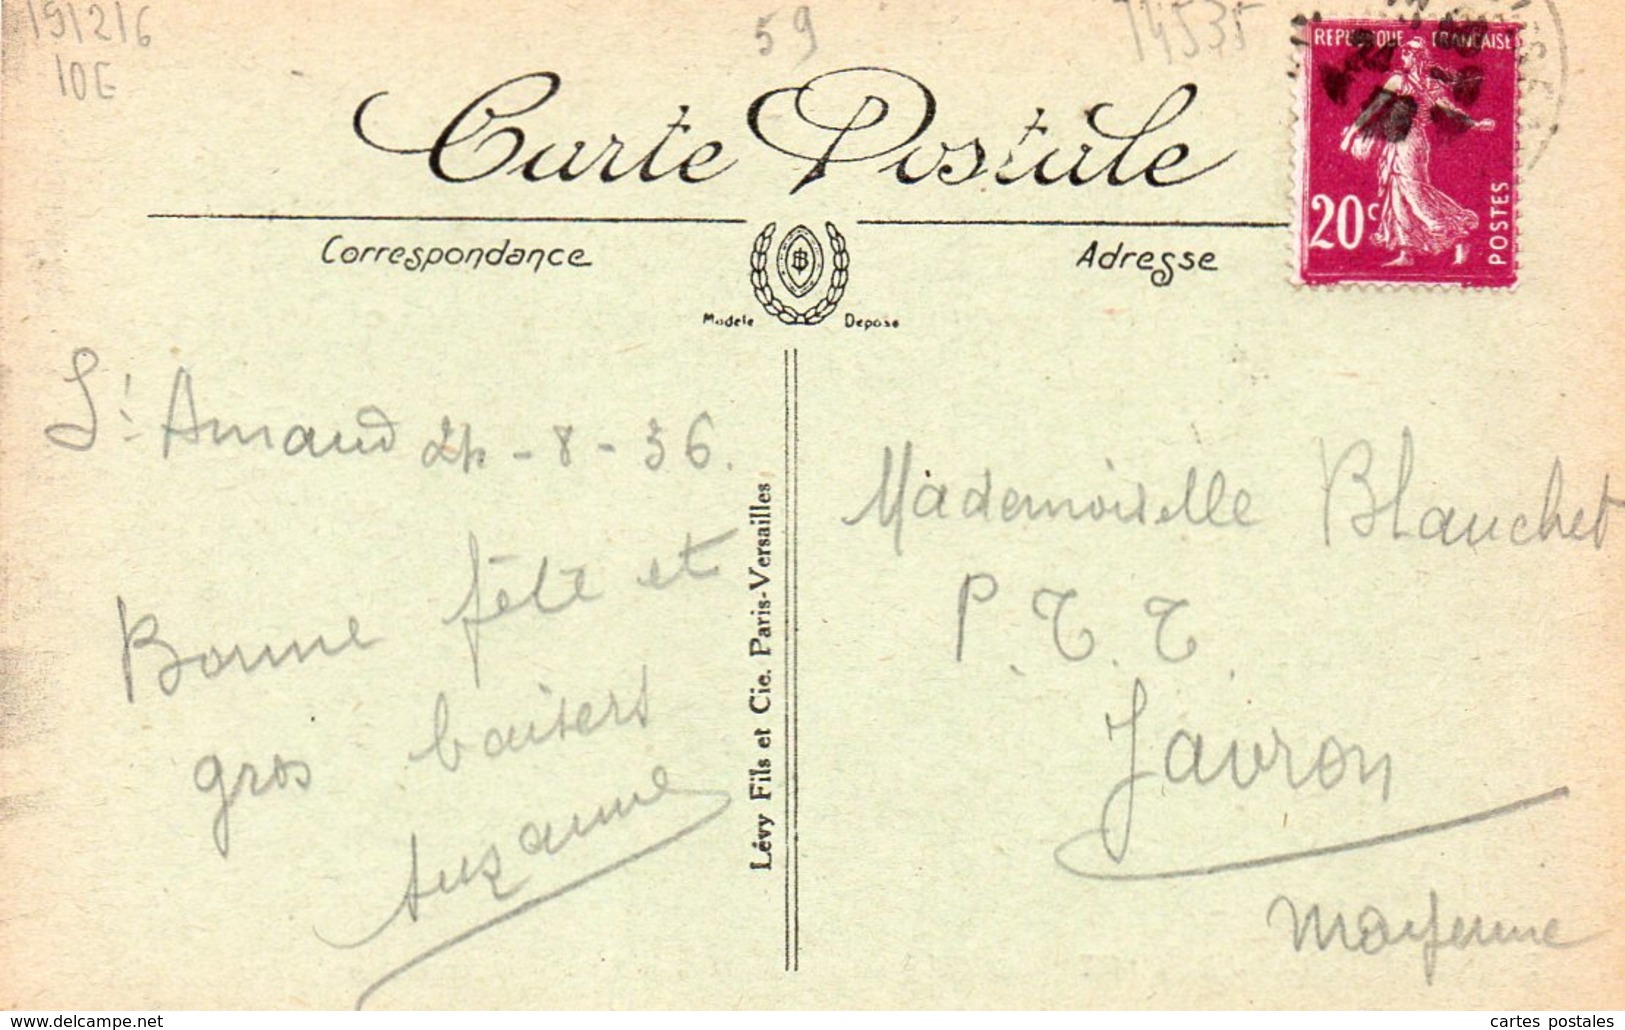 191216
10E
59
74535
REPUBLIQUE FRANCAISE
20c
POSTES
Carte Postale
Correspondance
Adresse
Modele Depose
St Amand 24-8-36.
Bonne fête et
gros baisers
Suzanne
Lévy Fils et Cie. Paris-Versailles
Mademoiselle Blanchet
P.T.T.
Javron
Mayenne
www.delcampe.net
cartes postales